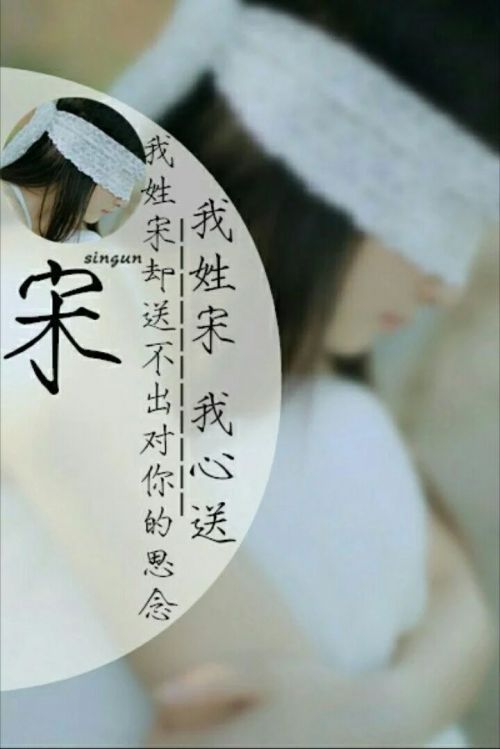 singun
宋
我姓宋却送不出对你的思念
我姓宋 我心送